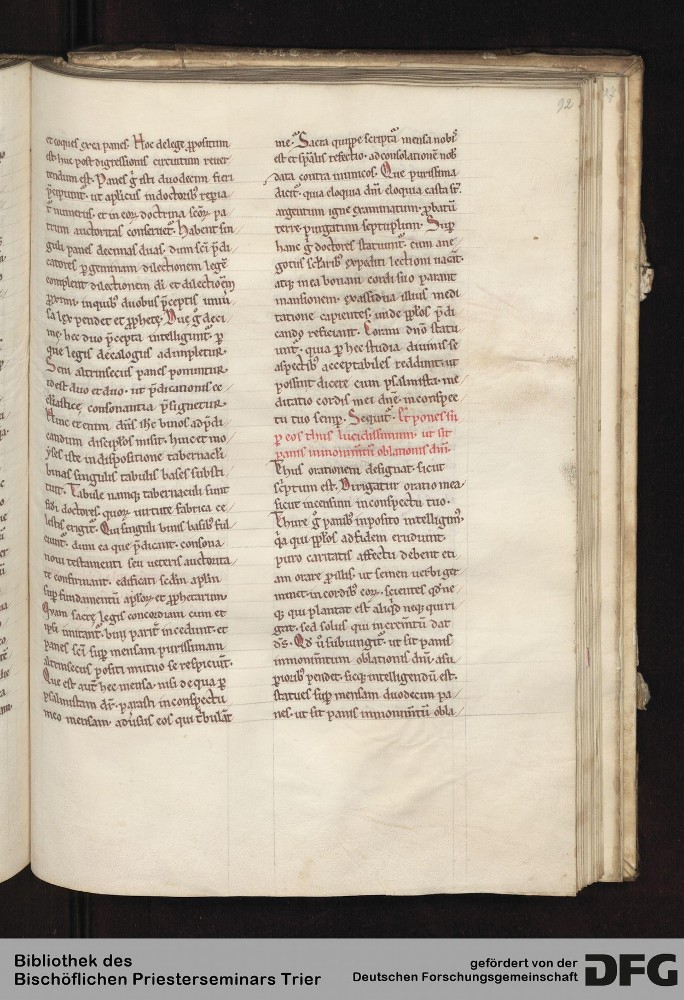 92
et coques exea panes. Hoc de lege ppositum
est. huc post digressionis circuitum reuer
tendum est. Panes g̃ isti duodecim fieri
p̃cipiunt᷑. ut aplicus in doctorib᷒ repia
t᷑ numerus. et in eoꝝ doctrina scõꝝ pa
trum auctoritas conseruet᷑. Habent sin
guli panes decimas duas. dum sc̃i p̃di
catores p geminam dilectionem legẽ
complent dilectionem di et dilectionẽ
pximi. in quib᷒ duobus p̃ceptis uniũ
sa lex pendet et pphetẹ. Due g̃ deci
mẹ. hec duo p̃cepta intelligunt᷑. p
que legis decalogus adimpletur.
Seni altrinsecus panes ponuntur
id est duo et duo. ut p̃dicationis ec
cl̃iasticẹ consonantia p̃signetur.
Hinc et enim dñs ihc binos ad p̃di
candum discipłos misit. hinc et mo
yses iste in dispositione tabernacli
binas singulis tabulis bases substi
tuit. Tabule namq; tabernaculi sunt
sc̃i doctores. quoꝝ uirtute fabrica ce
lestis erigit᷑. Qui singuli binis basib᷒ ful
ciunt᷑. dum ea que p̃dicant. consona
noui testamenti seu ueteris auctorita
te confirmant. edificati scdm aplm
sup fundamentũ aploꝝ et pphetarum.
Quam sacrẹ legis concordiam cum et
ipsi imitant᷑. unii parit᷑ incedunt. et
panes sc̃i sup mensam purissimam
altrinsecus positi mutuo se respiciunt᷑.
Que est aut᷑ hec mensa. nisi de qua p
psalmistam dr̃. parasti in conspectu
meo mensam. aduersus eos qui t̃bulant
me᷑. Sacra quippe scripta mensa nobis
est et sp̃alis refectio. ad consolationẽ nob
data contra inimicos. Que purissima
dicit᷑. quia eloquia dñi eloquia casta st̃.
argentum igne examinatum. pbatũ
terrẹ purgatum septuplum. Sup
hanc g̃ doctores statuunt᷑. cum a ne
gotiis sclarib᷒ expediti lectioni uacãt.
atq; in ea bonam cordi suo parant
mansionem. ex assidua illius medi
tatione capientes. unde pplos p̃di
cando reficiant. Coram dño statu
unt᷑. quia p hec studia diuinis se
aspectib᷒ acceptabiles reddunt. ut
possint dicere cum psalmista. me
ditatio cordis mei dñe in conspec
tu tuo semp. Sequit᷑. Et pones sũ
p eos thus lucidissimum. ut sit
panis in monimtũ oblationis dñi.
Thus orationem designat. sicut
sc̃ptum est. Dirigatur oratio mea
sicut incensum in conspectu tuo.
Thure g̃ panib᷒ inposito intelligim᷒.
q̃a qui pplos ad fidem erudiunt
puro caritatis affectu debent eti
am orare p illis. ut semen uerbi ger
minet in cordib᷒ eoꝝ. scientes qd̃ ne
q; qui plantat est aliqd neq; qui ri
gat. sed solus qui incrementũ dat
d̃s. Qd̃ u᷑ subiungit᷑. ut sit panis
in monimtum oblationis dñi. a su
piorib᷒ pendet. sicq; intelligendũ est.
statues sup mensam duodecim pa
nes. ut sit panis in monimtũ obla
Bibliothek des
Bischöflichen Priesterseminars Trier
gefördert von der
Deutschen Forschungsgemeinschaft
DFG